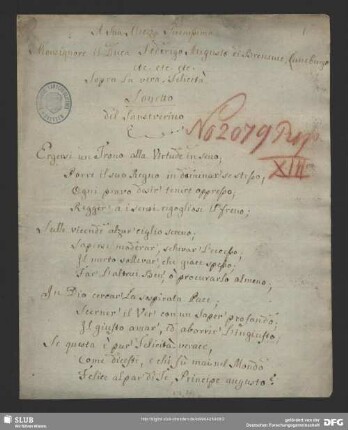 A Sua Altezza Serenissima
Monsignore il Duca Federigo Augusto di Brunsvic, Luneburgo
etc. etc. etc.
Sopra la vera Felicità.
Sonetto
del Sanseverino
No 2079 
XIII
Ergersi un Trono alla Virtude in seno,
Novre il suo Regno in dominar se stesso,
Ogni pravo desir tenere oppresso,
Regger' a i sensi rigogliosi il freno;
Sulle vicende alzar' ciglio sereno;
Sapersi moderar', schivar' l'eccesso,
Il merto sollevar' che giace spesso
Far l'altrui Ben', o procurarlo almeno,
In Dio cercar' la sospirata Pace;
Scerner' il Ver' con un saper' profondo;
Il giusto amar', ed aborrir' l'ingiusto.
Se questa è pur' Felicità verace,
Come dicesti, e chi fù mai nel Mondo
Felice al par' di Te, Principe augusto?
SLUB
Wir führen Wissen.
gefördert von der
Deutschen Forschungsgemeinschaft
DFG